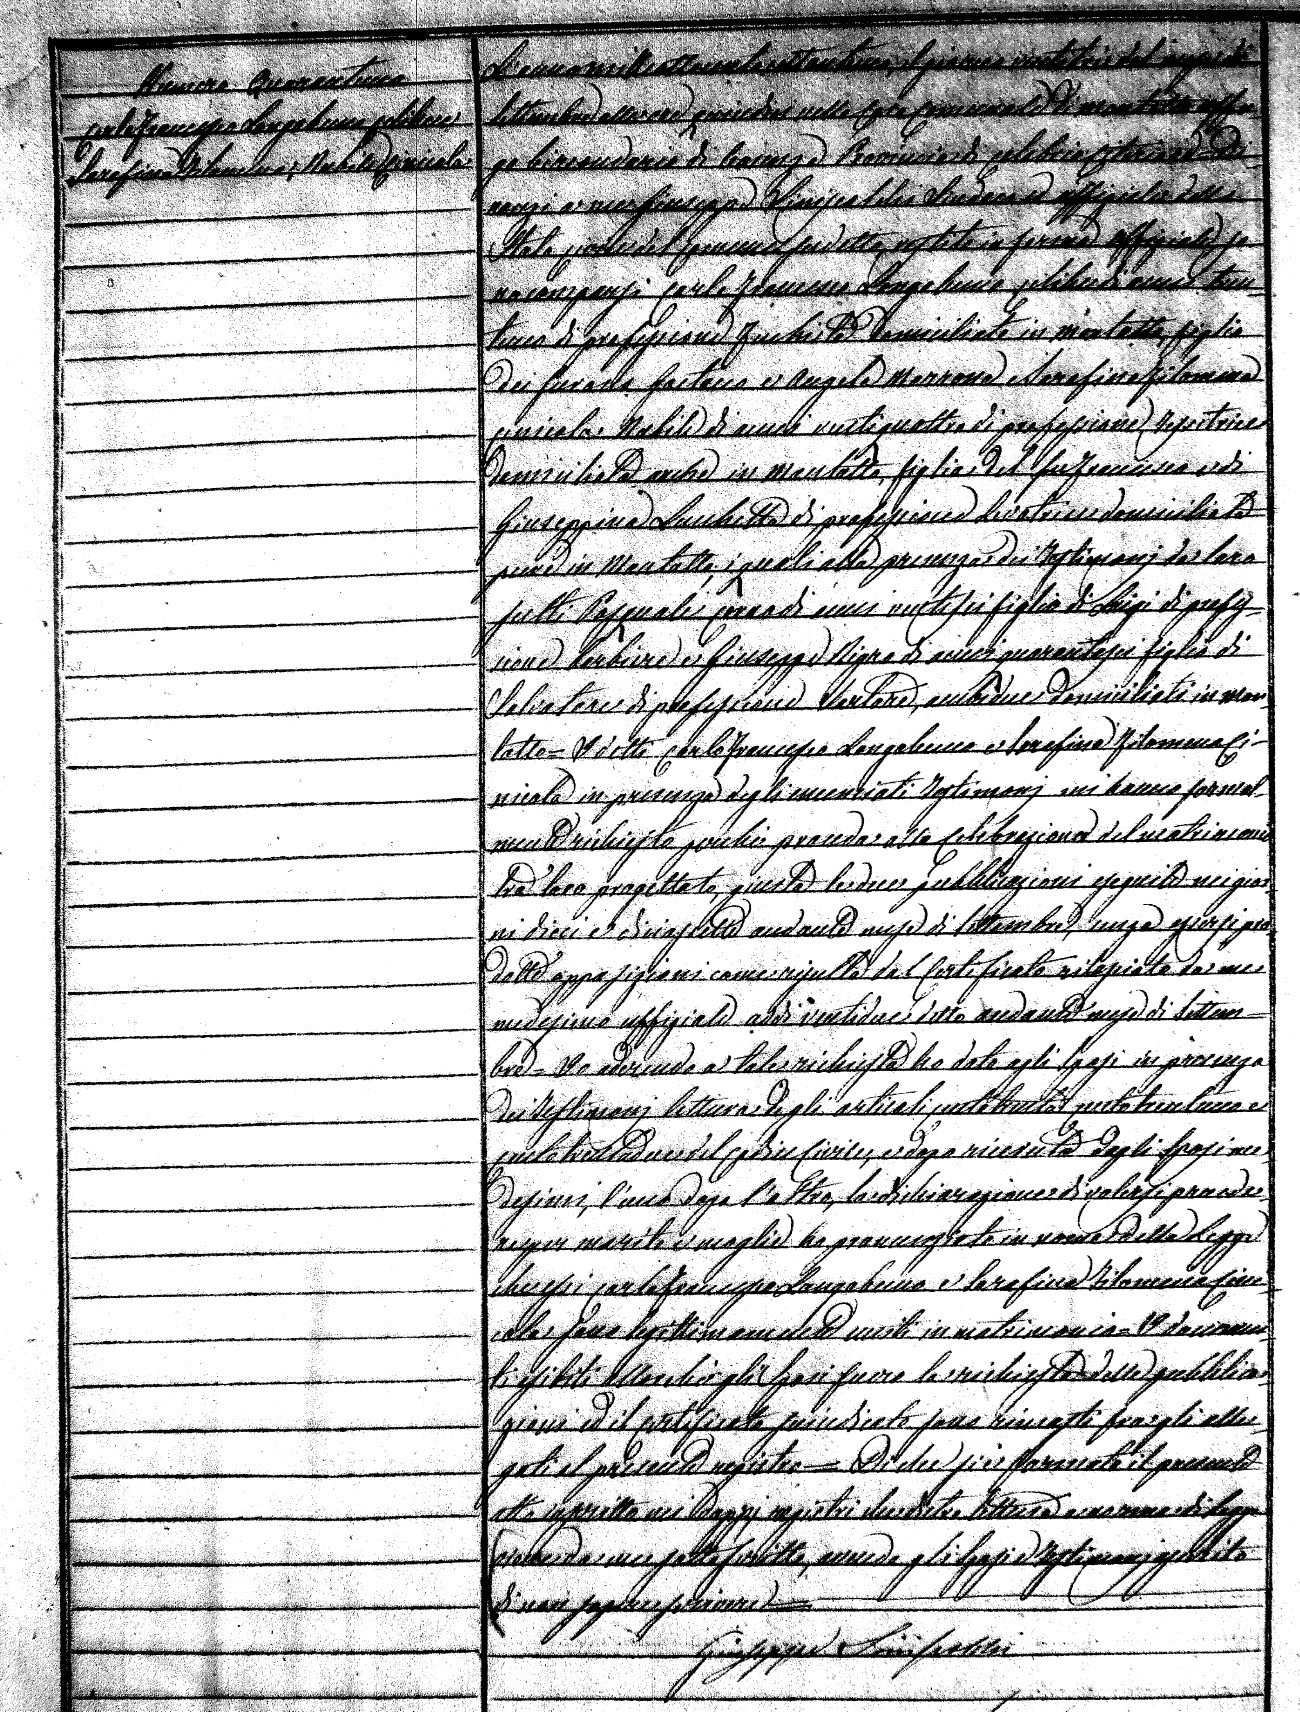 Numero Quarantuno
Carlo Francesco Longobucco celibe
Serafina Filomena, Nubile Cinicola
L'anno mille ottocento settantuno, il giorno ventitrè del mese di
Settembre alle ore quindici nella Casa Comunale di Montalto Uffu-
go Circondario di Cosenza Provincia di Calabria Citeriore Di-
nanzi a me Giuseppe Sindaco ed Uffiziale dello
Stato Civile del Comune suddetto vestito in forma uffiziale so
no comparsi Carlo Francesco Longobucco celibe di anni tren-
tuno di professione domiciliato in Montalto, figlio
dei furono Gaetano e Angela Marrone e Serafina Filomena
Cinicola Nubile di anni ventiquattro di professione Tessitrice
domiciliata anche in Montalto, figlia del fu Francesco e di
Giuseppina Luchetta di professione domiciliata
pure in Montalto, i quali alla presenza dei Testimonj da loro
scelti Pasquale di anni ventisei figlio di Luigi di profes-
sione Barbiere e Giuseppe Nigro di anni quarantasei figlio di
Salvatore di professione Sartore, ambidue domiciliati in Mon-
talto = I detti Carlo Francesco Longobucco e Serafina Filomena Ci-
nicola in presenza degli enunciati Testimonj mi hanno formal-
mente richiesto perché proceda alla celebrazione del matrimonio
tra loro progettato, giusta le due pubblicazioni eseguite nei gior-
ni dieci e diciassette andante mese di Settembre, senza essersi pro-
dotte opposizioni come risulta dal Certificato rilasciato da me
medesimo uffiziale addì ventidue detto andante mese di Settem-
bre = Io aderendo a tale richiesta ho dato agli Sposi in presenza
dei Testimonj lettura degli articoli centotrenta centotrentuno e
centotrentadue del Codice Civile, e dopo ricevuta dagli Sposi me-
desimi, l'uno dopo l'altro, la dichiarazione di volersi prende-
re per marito e moglie ho pronunziato in nome della Legge
che essi Carlo Francesco Longobucco e Serafina Filomena Cini-
cola sono legittimamente uniti in matrimonio = I documen-
ti esibiti allorché gli Sposi fecero la richiesta delle pubblica-
zioni ed il certificato sono rimasti fra gli alle-
gati al presente registro = Di che si è formato il presente
atto inscritto nei doppj registri che dietro lettura a norma di Legge
da me sottoscritto, avendo gli Sposi e Testimonj asserito
di non sapere scrivere =
Giuseppe